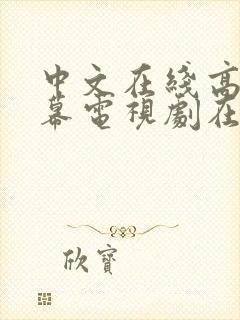 中文在綫高
幕電視劇在
欣寶